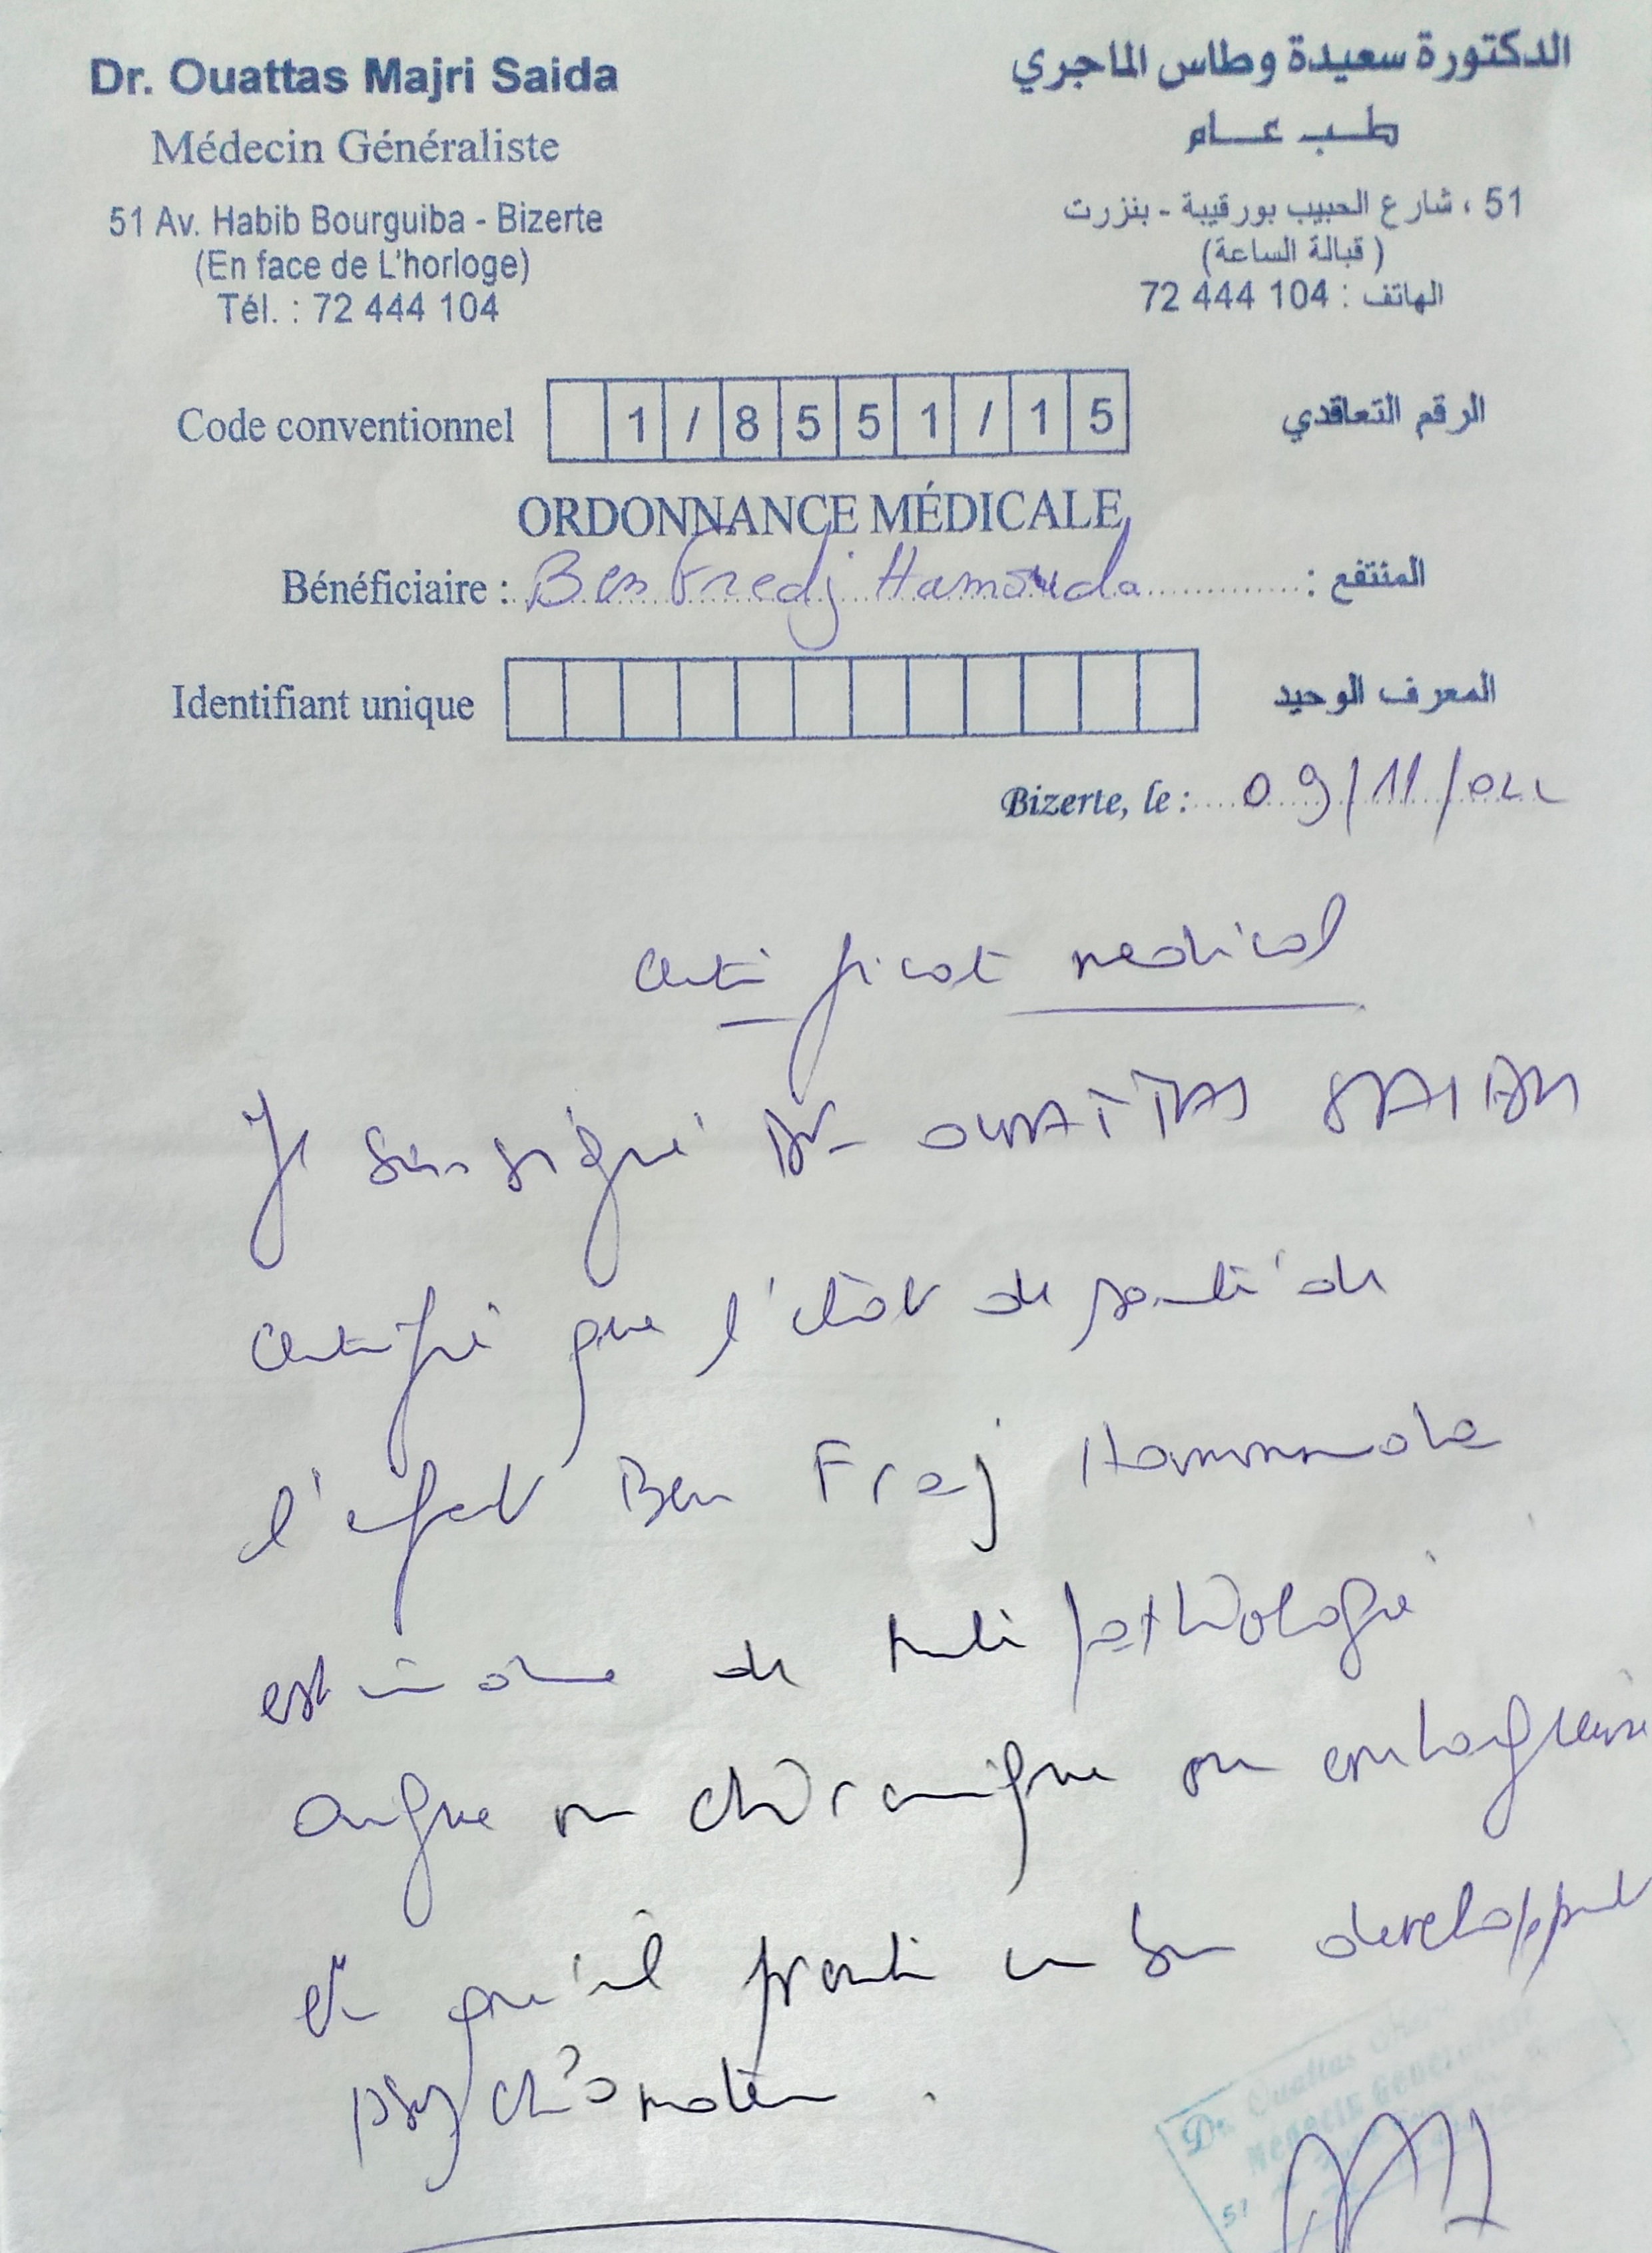 Dr. Ouattas Majri Saida
Médecin Généraliste
51 Av. Habib Bourguiba - Bizerte
(En face de L'horloge)
Tél. : 72 444 104
الدكتورة سعيدة وطاس الماجري
طب عام
51 ، شارع الحبيب بورقيبة - بنزرت
(قبالة الساعة)
الهاتف : 104 444 72
Code conventionnel 1/8551/15 الرقم التعاقدي
ORDONNANCE MÉDICALE
Bénéficiaire : Ben Fredj Hamouda المنتفع :
Identifiant unique المعرف الوحيد
Bizerte, le : 09/11/022
Certificat medical
Je soussigné Dr OUATTAS SAIDA
certifie que l'état de santé de
l'enfant Ben Fraj Hammouda
est indemne de toute pathologie
aigue ou chronique ou contagieuse
et qu'il présente un bon developpement
psychomoteur.
Dr. Ouattas
Médecin Généraliste
51